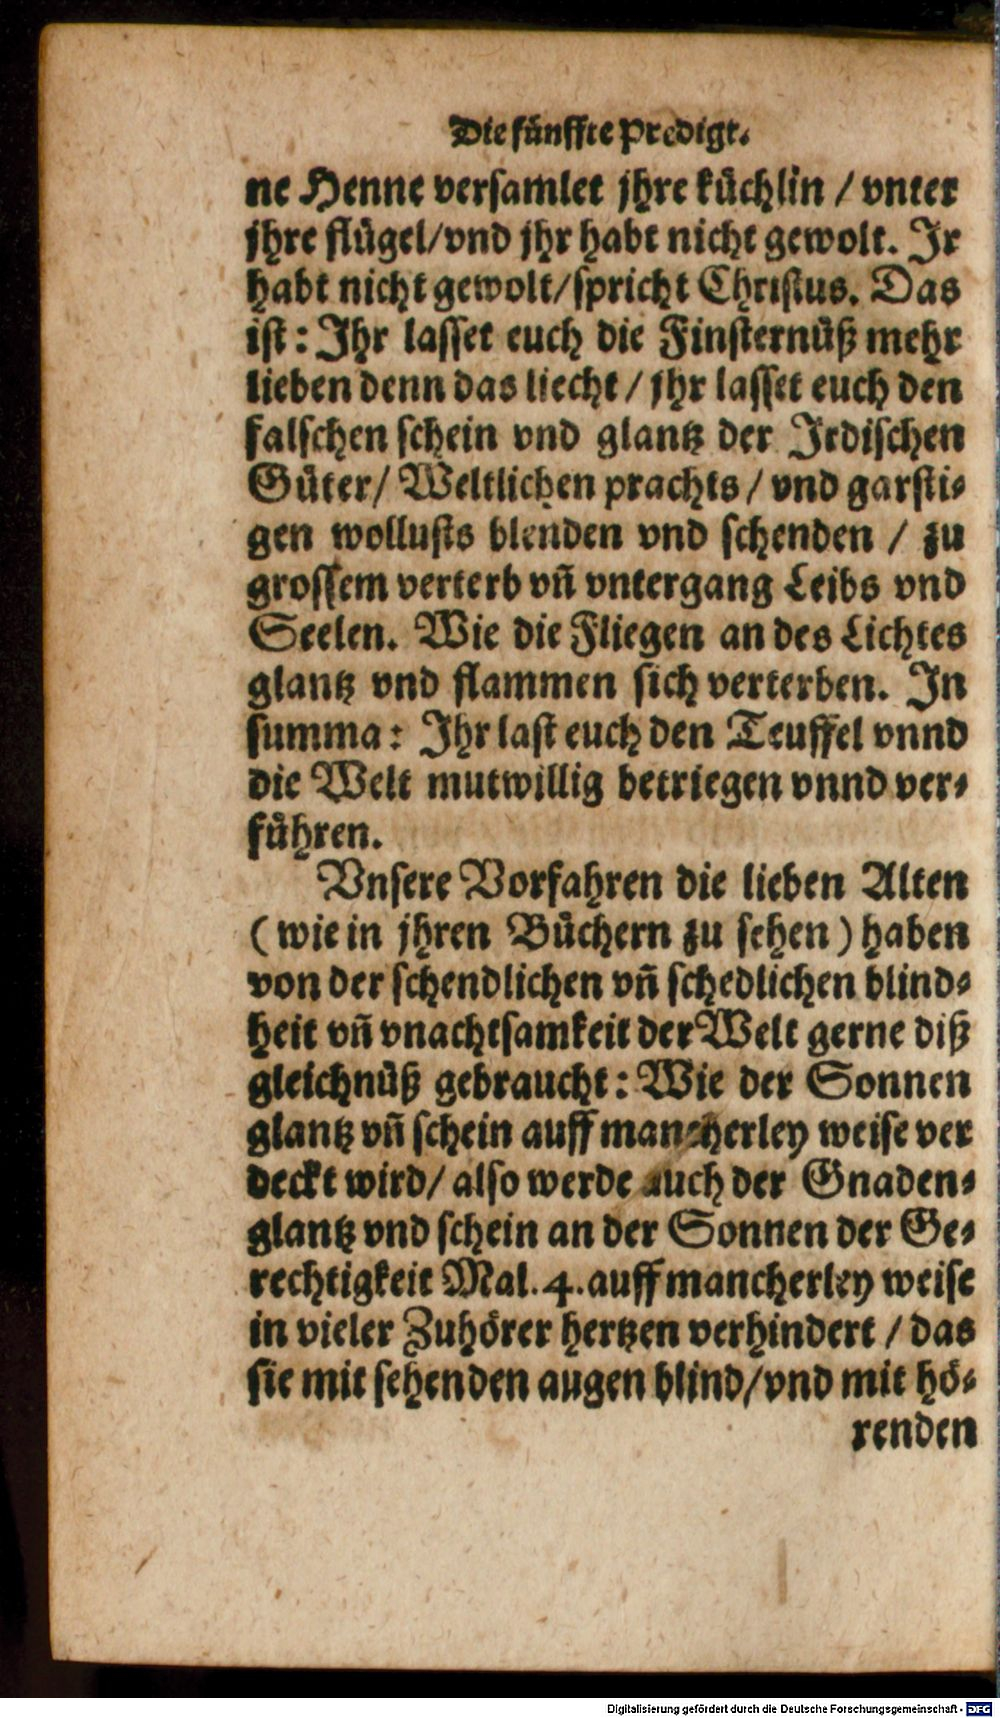 Die fünffte Predigt.
ne Henne versamlet jhre küchlin / vnter
jhre flügel/vnd jhr habt nicht gewolt. Jr
habt nicht gewolt/spricht Christus. Das
ist: Jhr lasset euch die Finsternüß mehr
lieben denn das liecht / jhr lasset euch den
falschen schein vnd glantz der Jrdischen
Güter/ Weltlichen prachts / vnd garsti-
gen wollusts blenden vnd schenden / zu
grossem verterb vñ vntergang Leibs vnd
Seelen. Wie die Fliegen an des Lichtes
glantz vnd flammen sich verterben. Jn
summa: Jhr last euch den Teuffel vnnd
die Welt mutwillig betriegen vnnd ver-
führen.
Vnsere Vorfahren die lieben Alten
( wie in jhren Büchern zu sehen ) haben
von der schendlichen vñ schedlichen blind-
heit vñ vnachtsamkeit der Welt gerne diß
gleichnüß gebraucht: Wie der Sonnen
glantz vñ schein auff mancherley weise ver
deckt wird/ also werde auch der Gnaden-
glantz vnd schein an der Sonnen der Ge-
rechtigkeit Mal. 4. auff mancherley weise
in vieler Zuhörer hertzen verhindert / das
sie mit sehenden augen blind/vnd mit hö-
renden
Digitalisierung gefördert durch die Deutsche Forschungsgemeinschaft - DFG